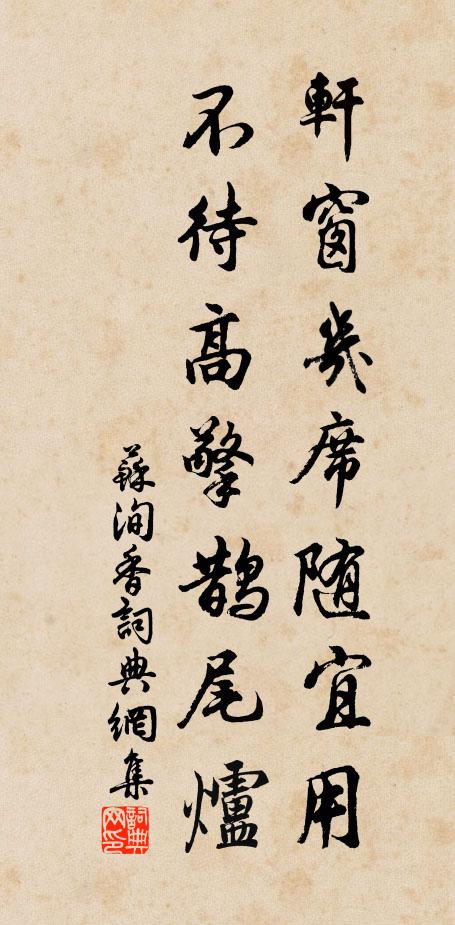 軒窗幾席随宜用
不待高擎鵲尾爐
蘇洵香詞典網集
詞典網印